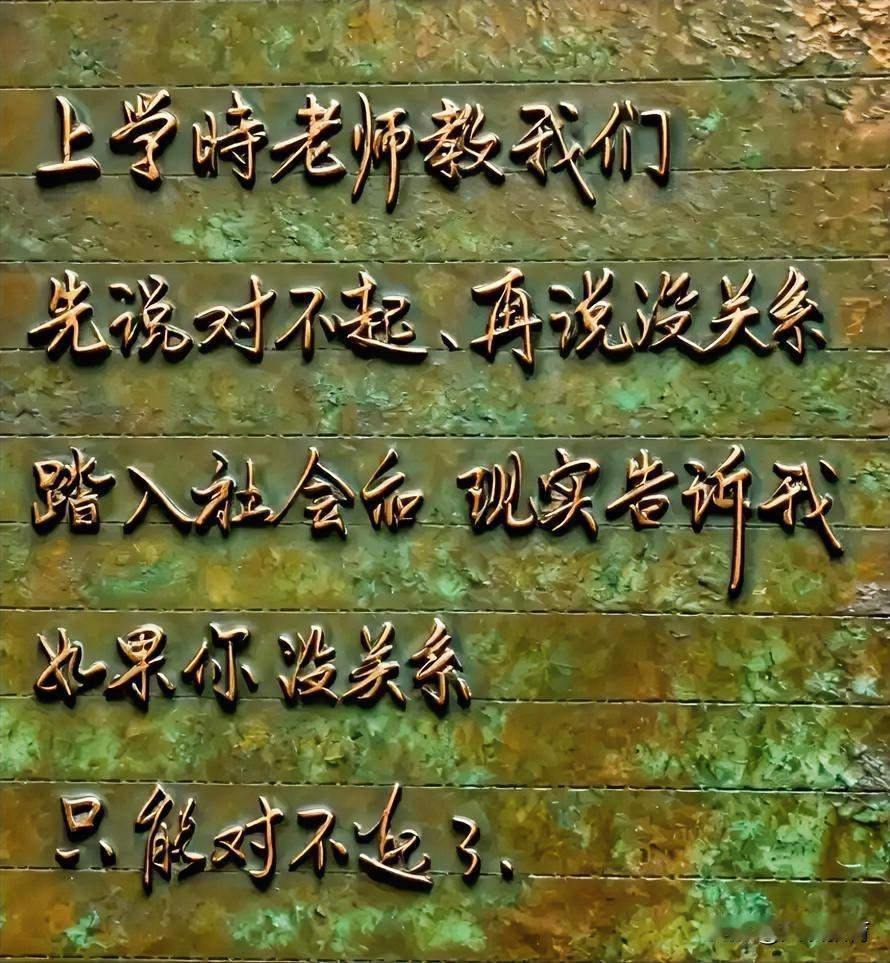 上学時老师教我们
先说对不起、再说没关系
踏入社会后 现实告诉我
如果你没关系
只能对不起了、